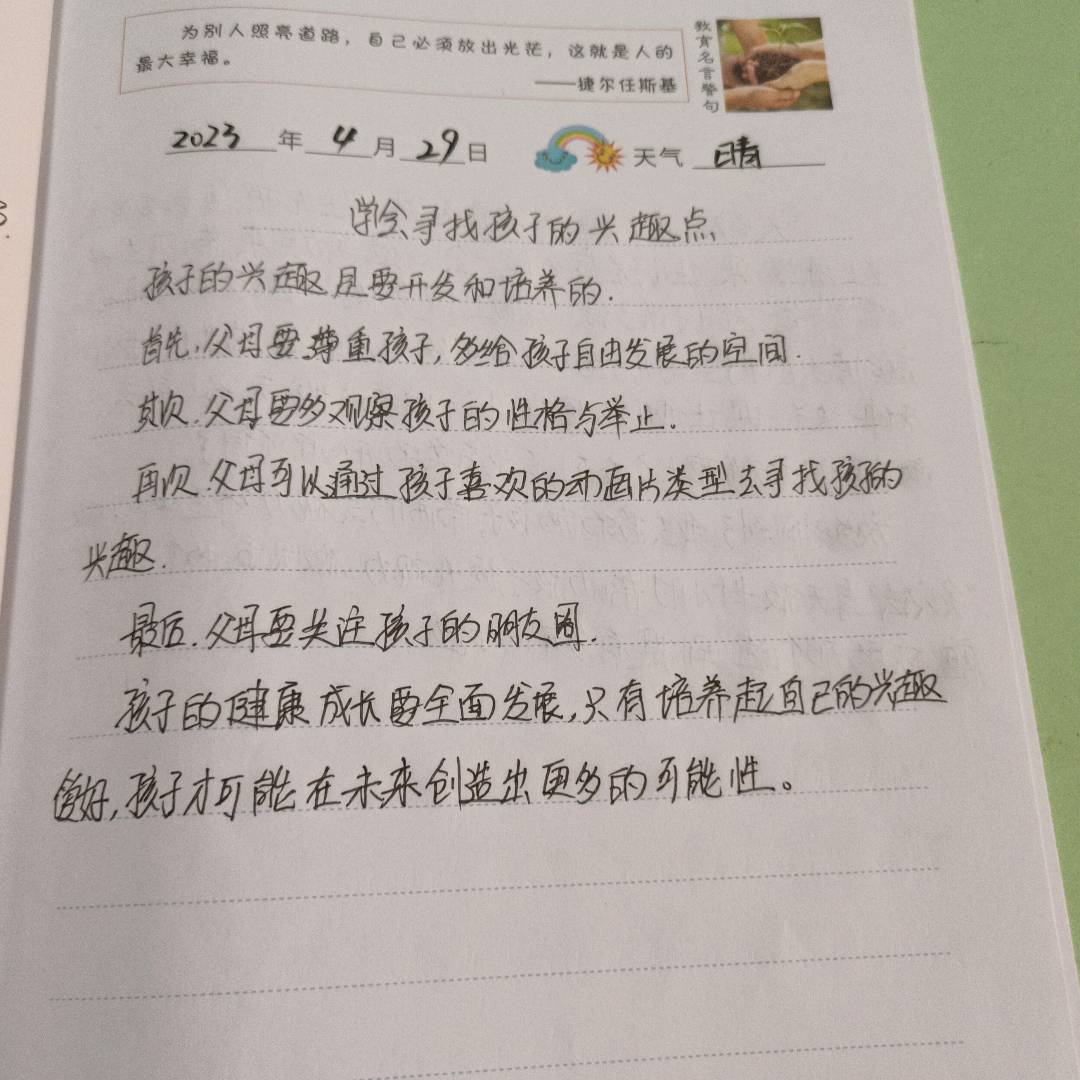 为别人照亮道路，自己必须放出光芒，这就是人的
最大幸福。
——捷尔任斯基
教育名言警句
2023年4月29日 天气 晴
学会寻找孩子的兴趣点
孩子的兴趣是要开发和培养的.
首先.父母要尊重孩子,多给孩子自由发展的空间.
其次.父母要多观察孩子的性格与举止.
再次.父母可以通过孩子喜欢的动画片类型去寻找孩子的
兴趣.
最后.父母要关注孩子的朋友圈.
孩子的健康成长要全面发展,只有培养起自己的兴趣
爱好,孩子才可能在未来创造出更多的可能性。